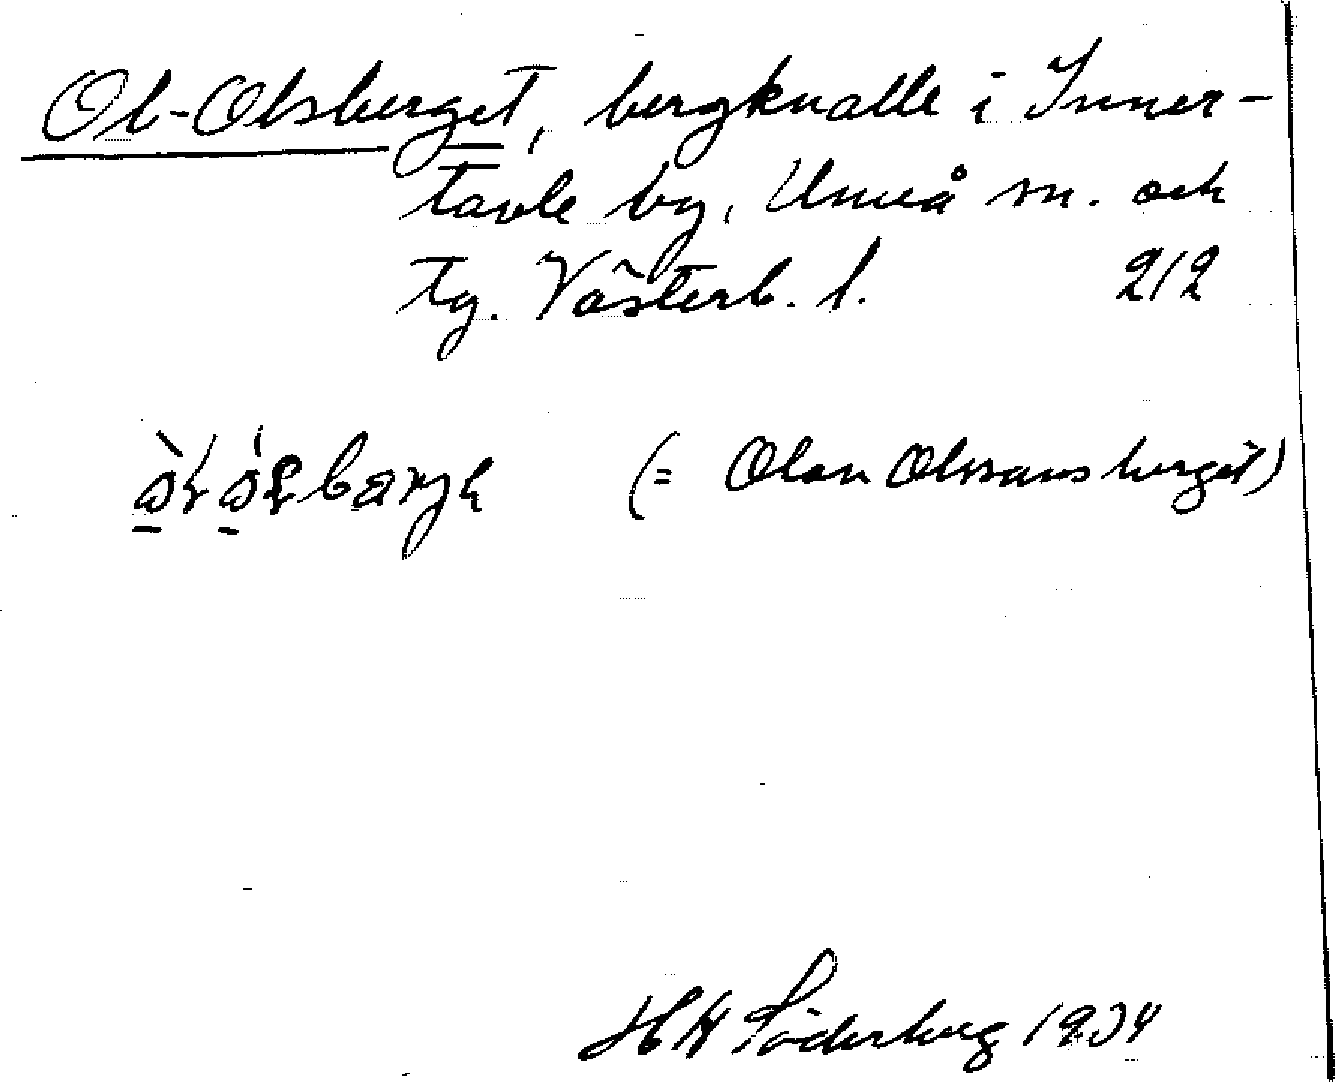 Ol-Olsberget, bergknalle i Inner-
tavle by, Umeå sn. och
tg. Västerb. l. 212
(= Olov Olssons berget)
H Söderberg 1934